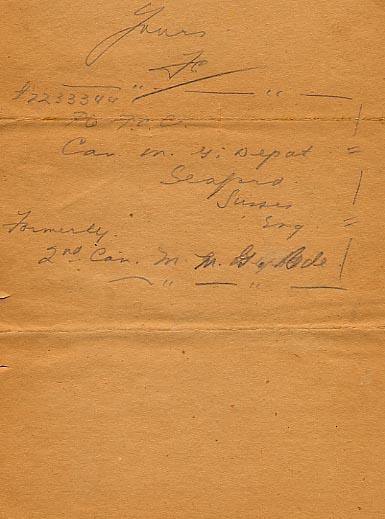 Yours
Fc
#2233344
Can. M. G. Depot
Seaford
Sussex
Eng
Formerly.
2nd Can. M. M. G. Bde